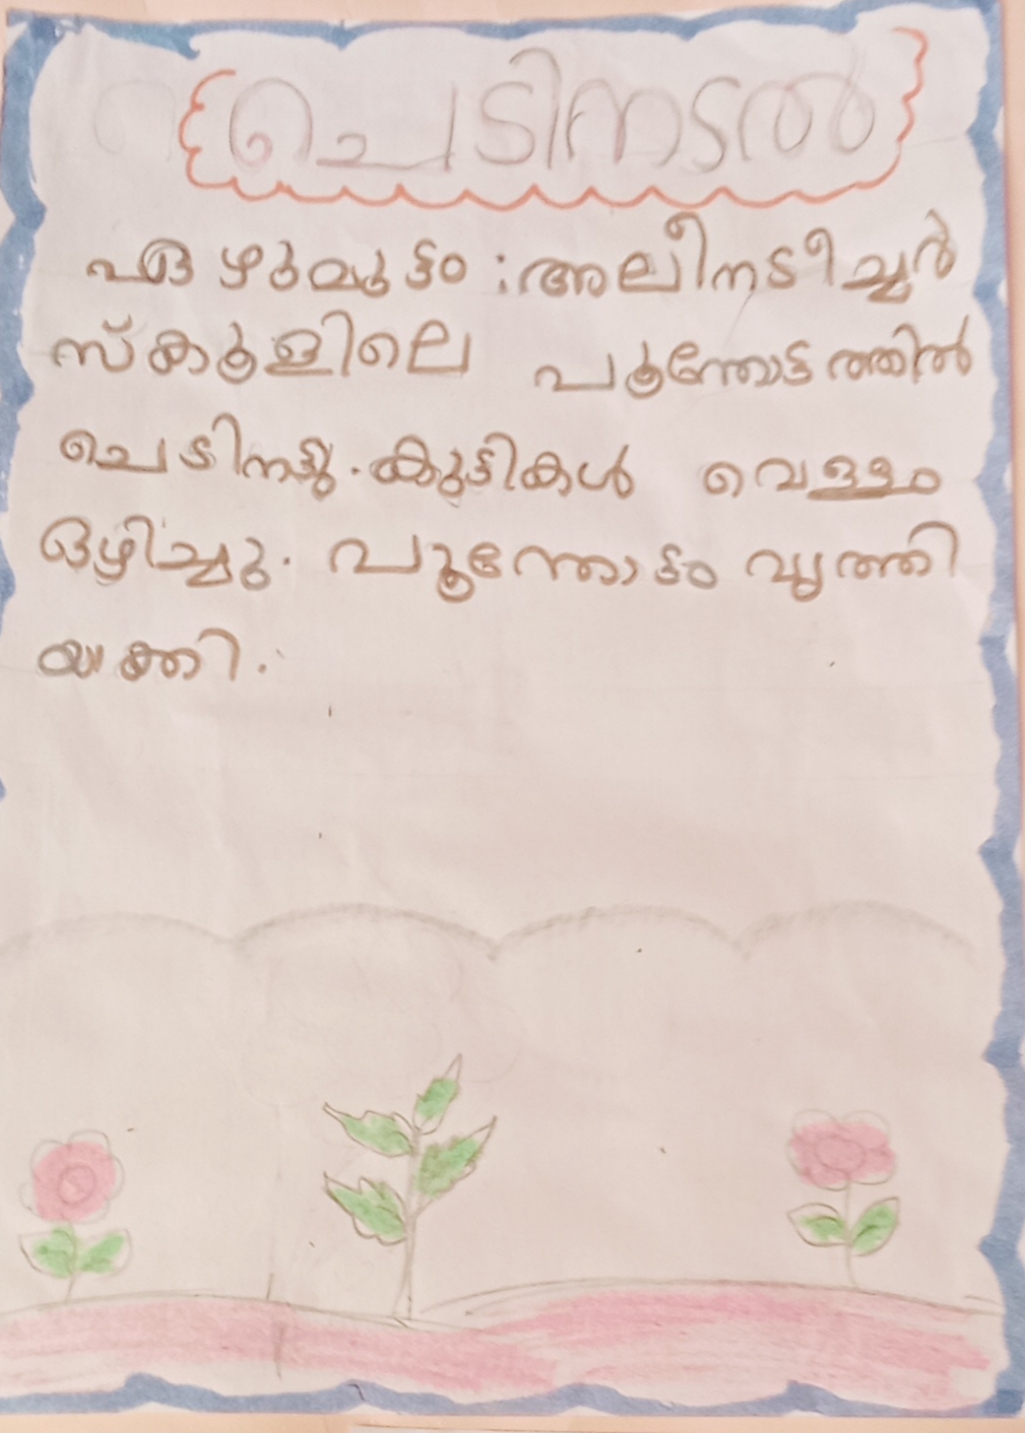 ചെടിനടൽ
ഏഴുമറ്റം : അലീനടീച്ചർ
സ്കൂളിലെ പൂന്തോട്ടത്തിൽ
ചെടിനട്ടു. കുട്ടികൾ വെള്ളം
ഒഴിച്ചു. പൂന്തോട്ടം വൃത്തി
യക്കി.